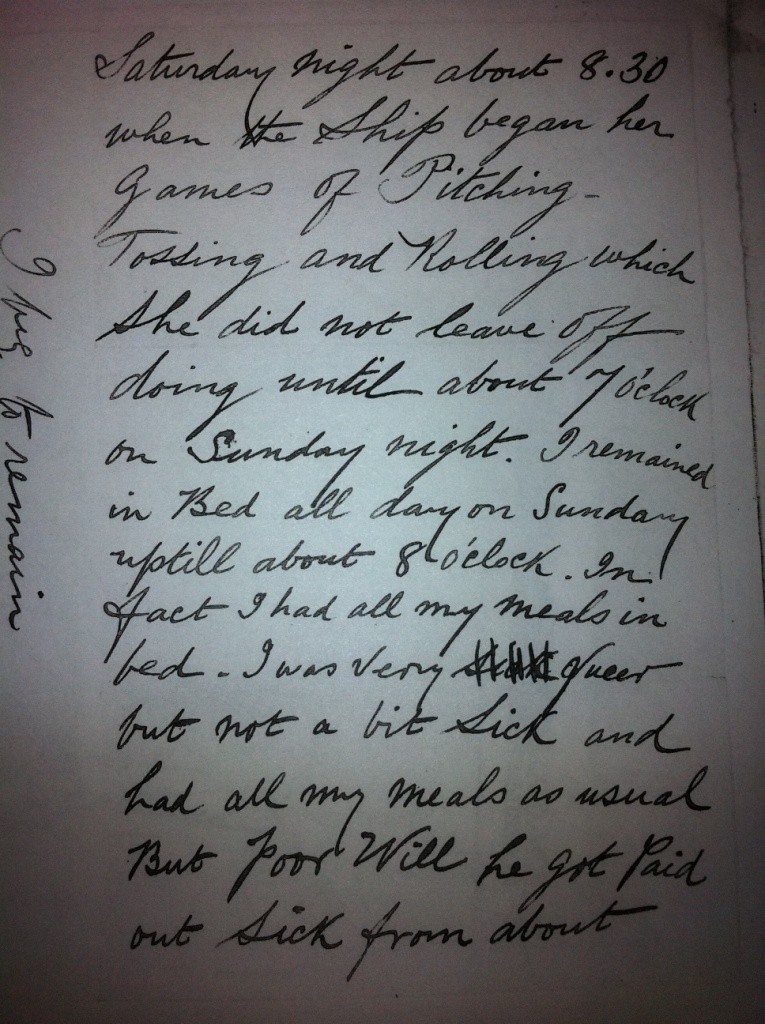 Saturday night about 8.30
when the Ship began her
Games of Pitching -
Tossing and Rolling which
she did not leave off
doing until about 7 o'clock
on Sunday night. I remained
in Bed all day on Sunday
uptill about 8 o'clock. In
fact I had all my meals in
bed - I was very Queer
but not a bit sick and
had all my meals as usual
But Poor Will he got Paid
out sick from about
I beg to remain